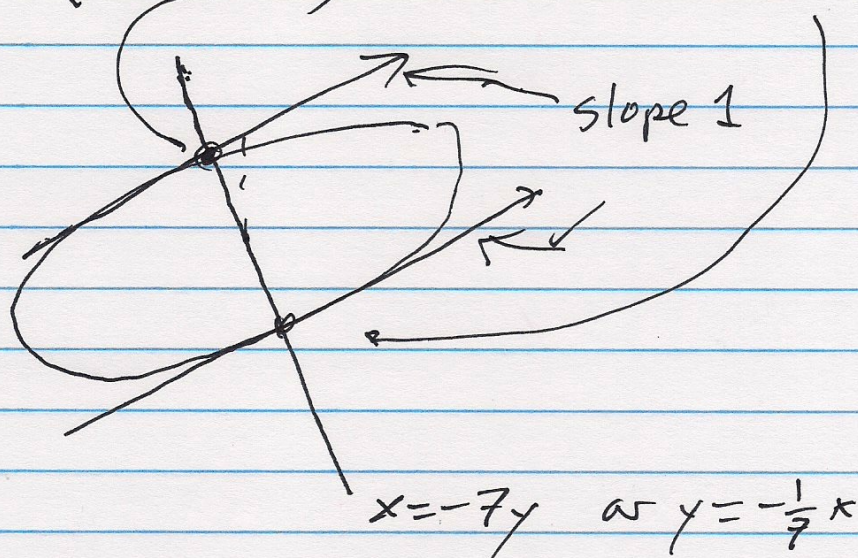 slope 1
x = -7y or y = -1/7 x